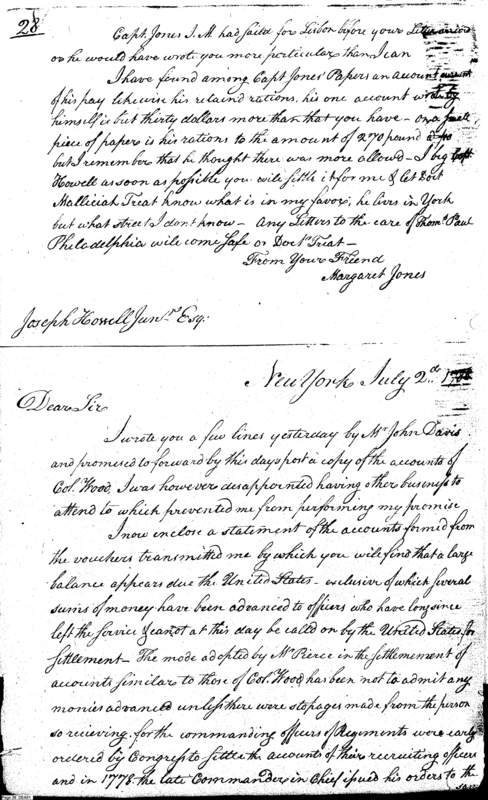 28
Capt. Jones I. M had saild for Lisbon before your Letter
or he would have wrote you more particular than I can
I have found among Capt Jones' Papers an account
of his pay likewise his retaind rations, his one account
himself is but thirty dollars more than that you have - on a small
piece of paper is his rations to the amount of 270 pound
but I remember that he thought there was more allowd - I beg
Howell as soon as possible you will settle it for me & let Doct
Malliciah Treat know what is in my favor, he lives in York
but what street I dont know - Any Letters to the care of Thoms. Paul
Philadelphia will come Safe or Doctr. Treat -
From Your Friend
Margaret Jones
Joseph Howell Junr. Esq:
New York July 2d.
Dear Sir
I wrote you a few lines yesterday by Mr John Davis
and promised to forward by this days post a copy of the accounts of
Col. Wood, I was however disappointed having other business to
attend to which prevented me from performing my promise
I now enclose a statement of the accounts formed from
the vouchers transmitted me by which you will find that a large
balance appears due the United States - exclusive of which several
sums of money have been advanced to officers who have long since
left the Service & canot at this day be called on by the United States for
Settlement - The mode adopted by Mr Pierce in the settlemement of
accounts similar to those of Col. Wood has been not to admit any
monies advanced unless there were stopages made from the person
so recieving. for the commanding officers of Regiments were early
ordered by Congress to settle the accounts of their recruiting officers
and in 1778. the late Commander in Chief issued his orders to the